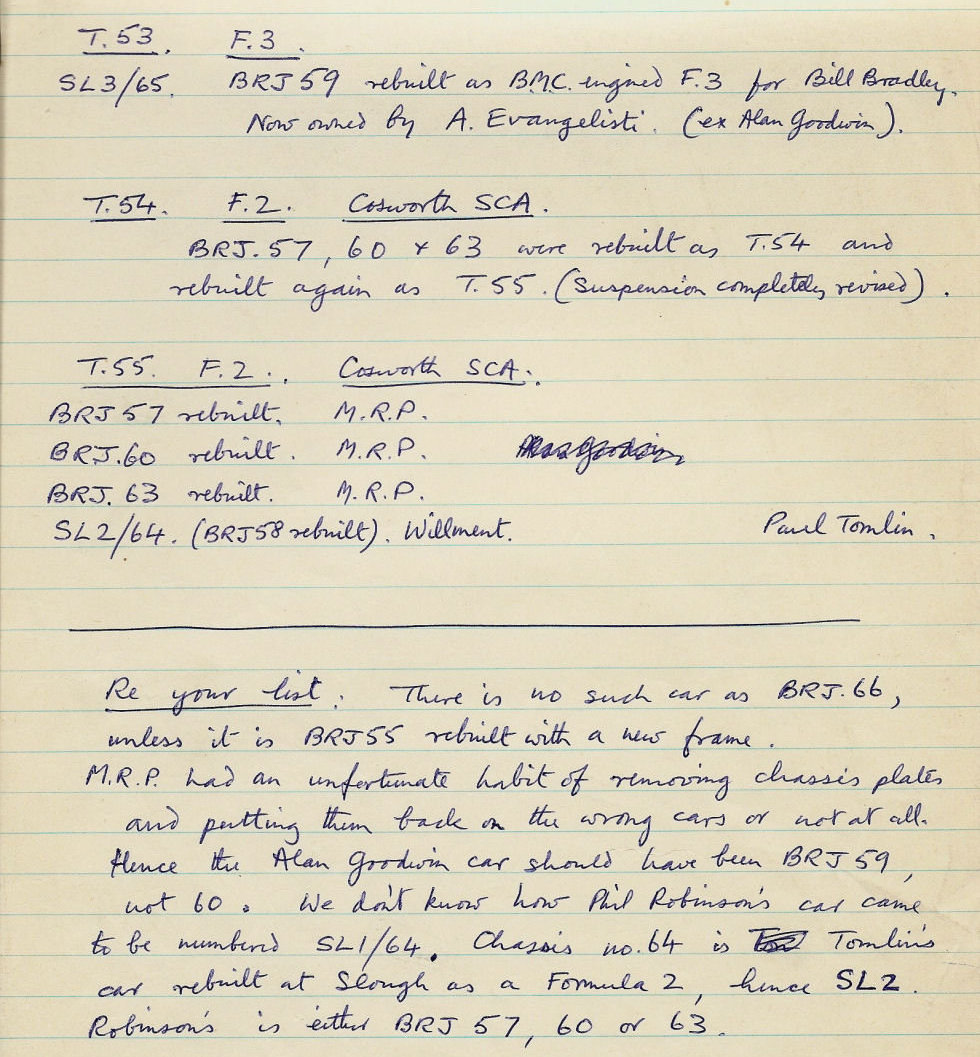 T.53. F.3.
SL3/65. BRJ 59 rebuilt as B.M.C. engined F.3 for Bill Bradley.
Now owned by A. Evangelisti. (ex Alan Goodwin).
T.54. F.2. Cosworth SCA.
BRJ.57, 60 & 63 were rebuilt as T.54 and
rebuilt again as T.55. (Suspension completely revised).
T.55. F.2. Cosworth SCA.
BRJ 57 rebuilt. M.R.P.
BRJ.60 rebuilt. M.R.P.
BRJ. 63 rebuilt. M.R.P.
SL2/64. (BRJ58 rebuilt). Willment. Paul Tomlin.
Re your list. There is no such car as BRJ.66,
unless it is BRJ55 rebuilt with a new frame.
M.R.P. had an unfortunate habit of removing chassis plates
and putting them back on the wrong cars or not at all.
Hence the Alan Goodwin car should have been BRJ 59,
not 60. We don't know how Phil Robinson's car came
to be numbered SL1/64. Chassis no.64 is Tomlin's
car rebuilt at Slough as a Formula 2, hence SL2.
Robinson's is either BRJ 57, 60 or 63.